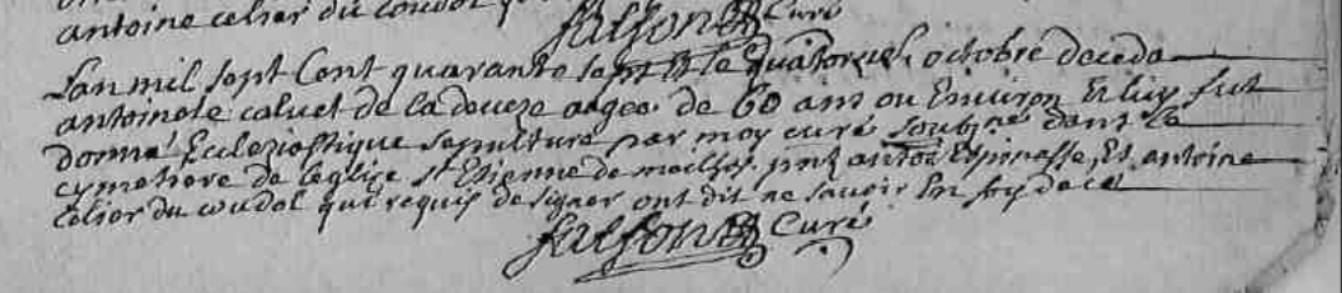 antoine celier du coudol
Curé
Lan mil sept Cent quarante sept et le quatorze octobre deceda
antoinete caluet de la doueze agee de 60 ans ou Environ Et luy fut
donné Ecleziastique sepulture par moy curé soubzné dans le
cymetiere de leglize st Etienne de pnt antoe Espinasse, Et antoine
Celier du coudol qui requis de signer ont dit ne savoir En foy de ce
Curé